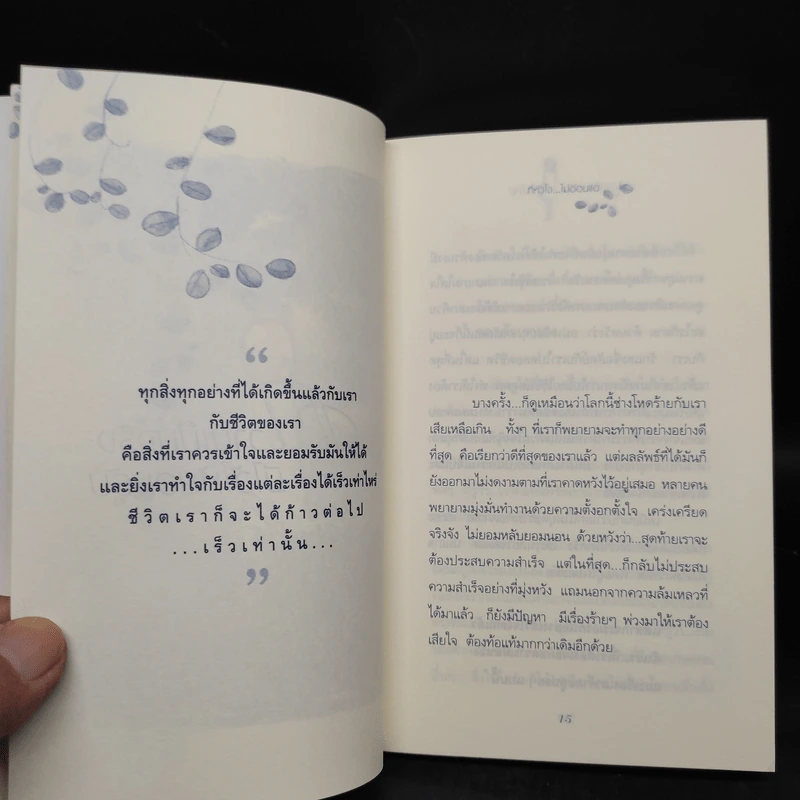 “
ทุกสิ่งทุกอย่างที่ได้เกิดขึ้นแล้วกับเรา
กับชีวิตของเรา
คือสิ่งที่เราควรเข้าใจและยอมรับมันให้ได้
และยิ่งเราทำใจกับเรื่องแต่ละเรื่องได้เร็วเท่าไหร่
ชีวิตเราก็จะได้ก้าวต่อไป
...เร็วเท่านั้น...
”
บางครั้ง...ก็ดูเหมือนว่าโลกนี้ช่างโหดร้ายกับเรา
เสียเหลือเกิน ทั้งๆ ที่เราก็พยายามจะทำทุกอย่างอย่างดี
ที่สุด คือเรียกว่าดีที่สุดของเราแล้ว แต่ผลลัพธ์ที่ได้มันก็
ยังออกมาไม่งดงามตามที่เราคาดหวังไว้อยู่เสมอ หลายคน
พยายามมุ่งมั่นทำงานด้วยความตั้งอกตั้งใจ เคร่งเครียด
จริงจัง ไม่ยอมหลับยอมนอน ด้วยหวังว่า...สุดท้ายเราจะ
ต้องประสบความสำเร็จ แต่ในที่สุด...ก็กลับไม่ประสบ
ความสำเร็จอย่างที่มุ่งหวัง แถมนอกจากความล้มเหลวที่
ได้มาแล้ว ก็ยังมีปัญหา มีเรื่องร้ายๆ พ่วงมาให้เราต้อง
เสียใจ ต้องท้อแท้มากกว่าเดิมอีกด้วย
15